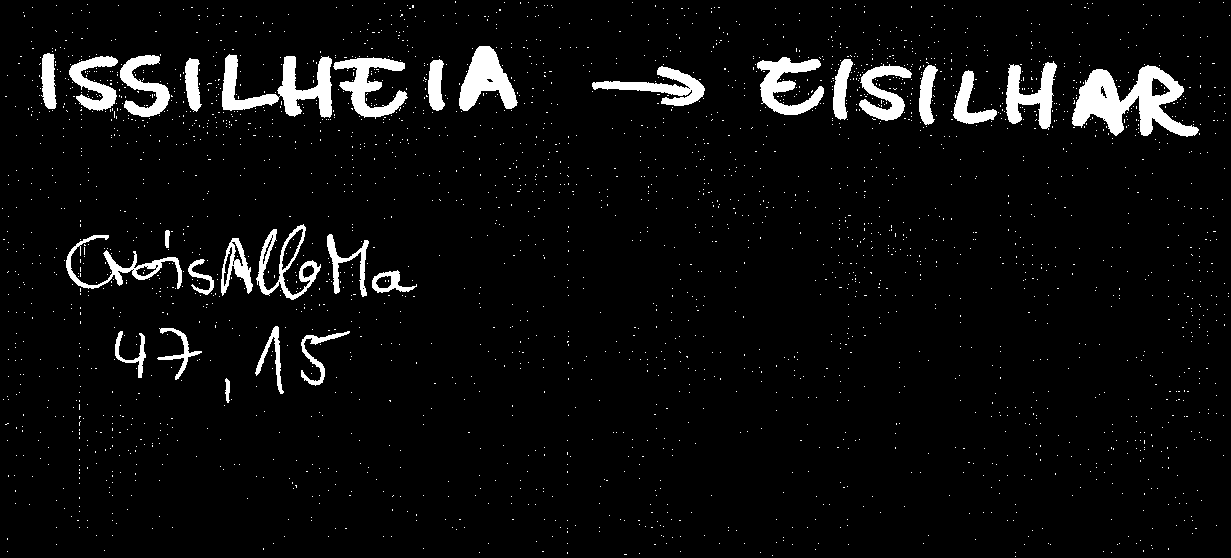 ISSILHEIA → EISILHAR
CroisAlbMa
47, 15